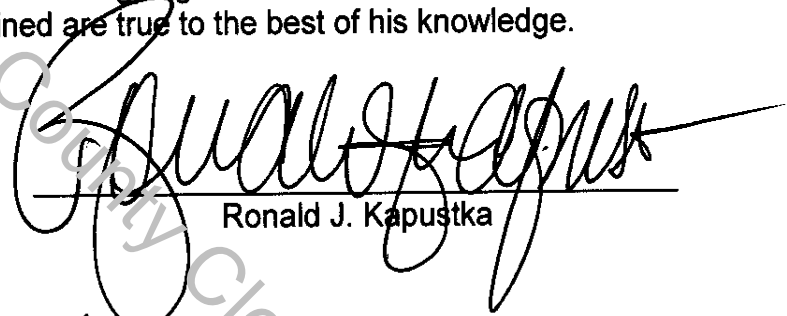 ined are true to the best of his knowledge.
Ronald J. Kapustka
County Cle